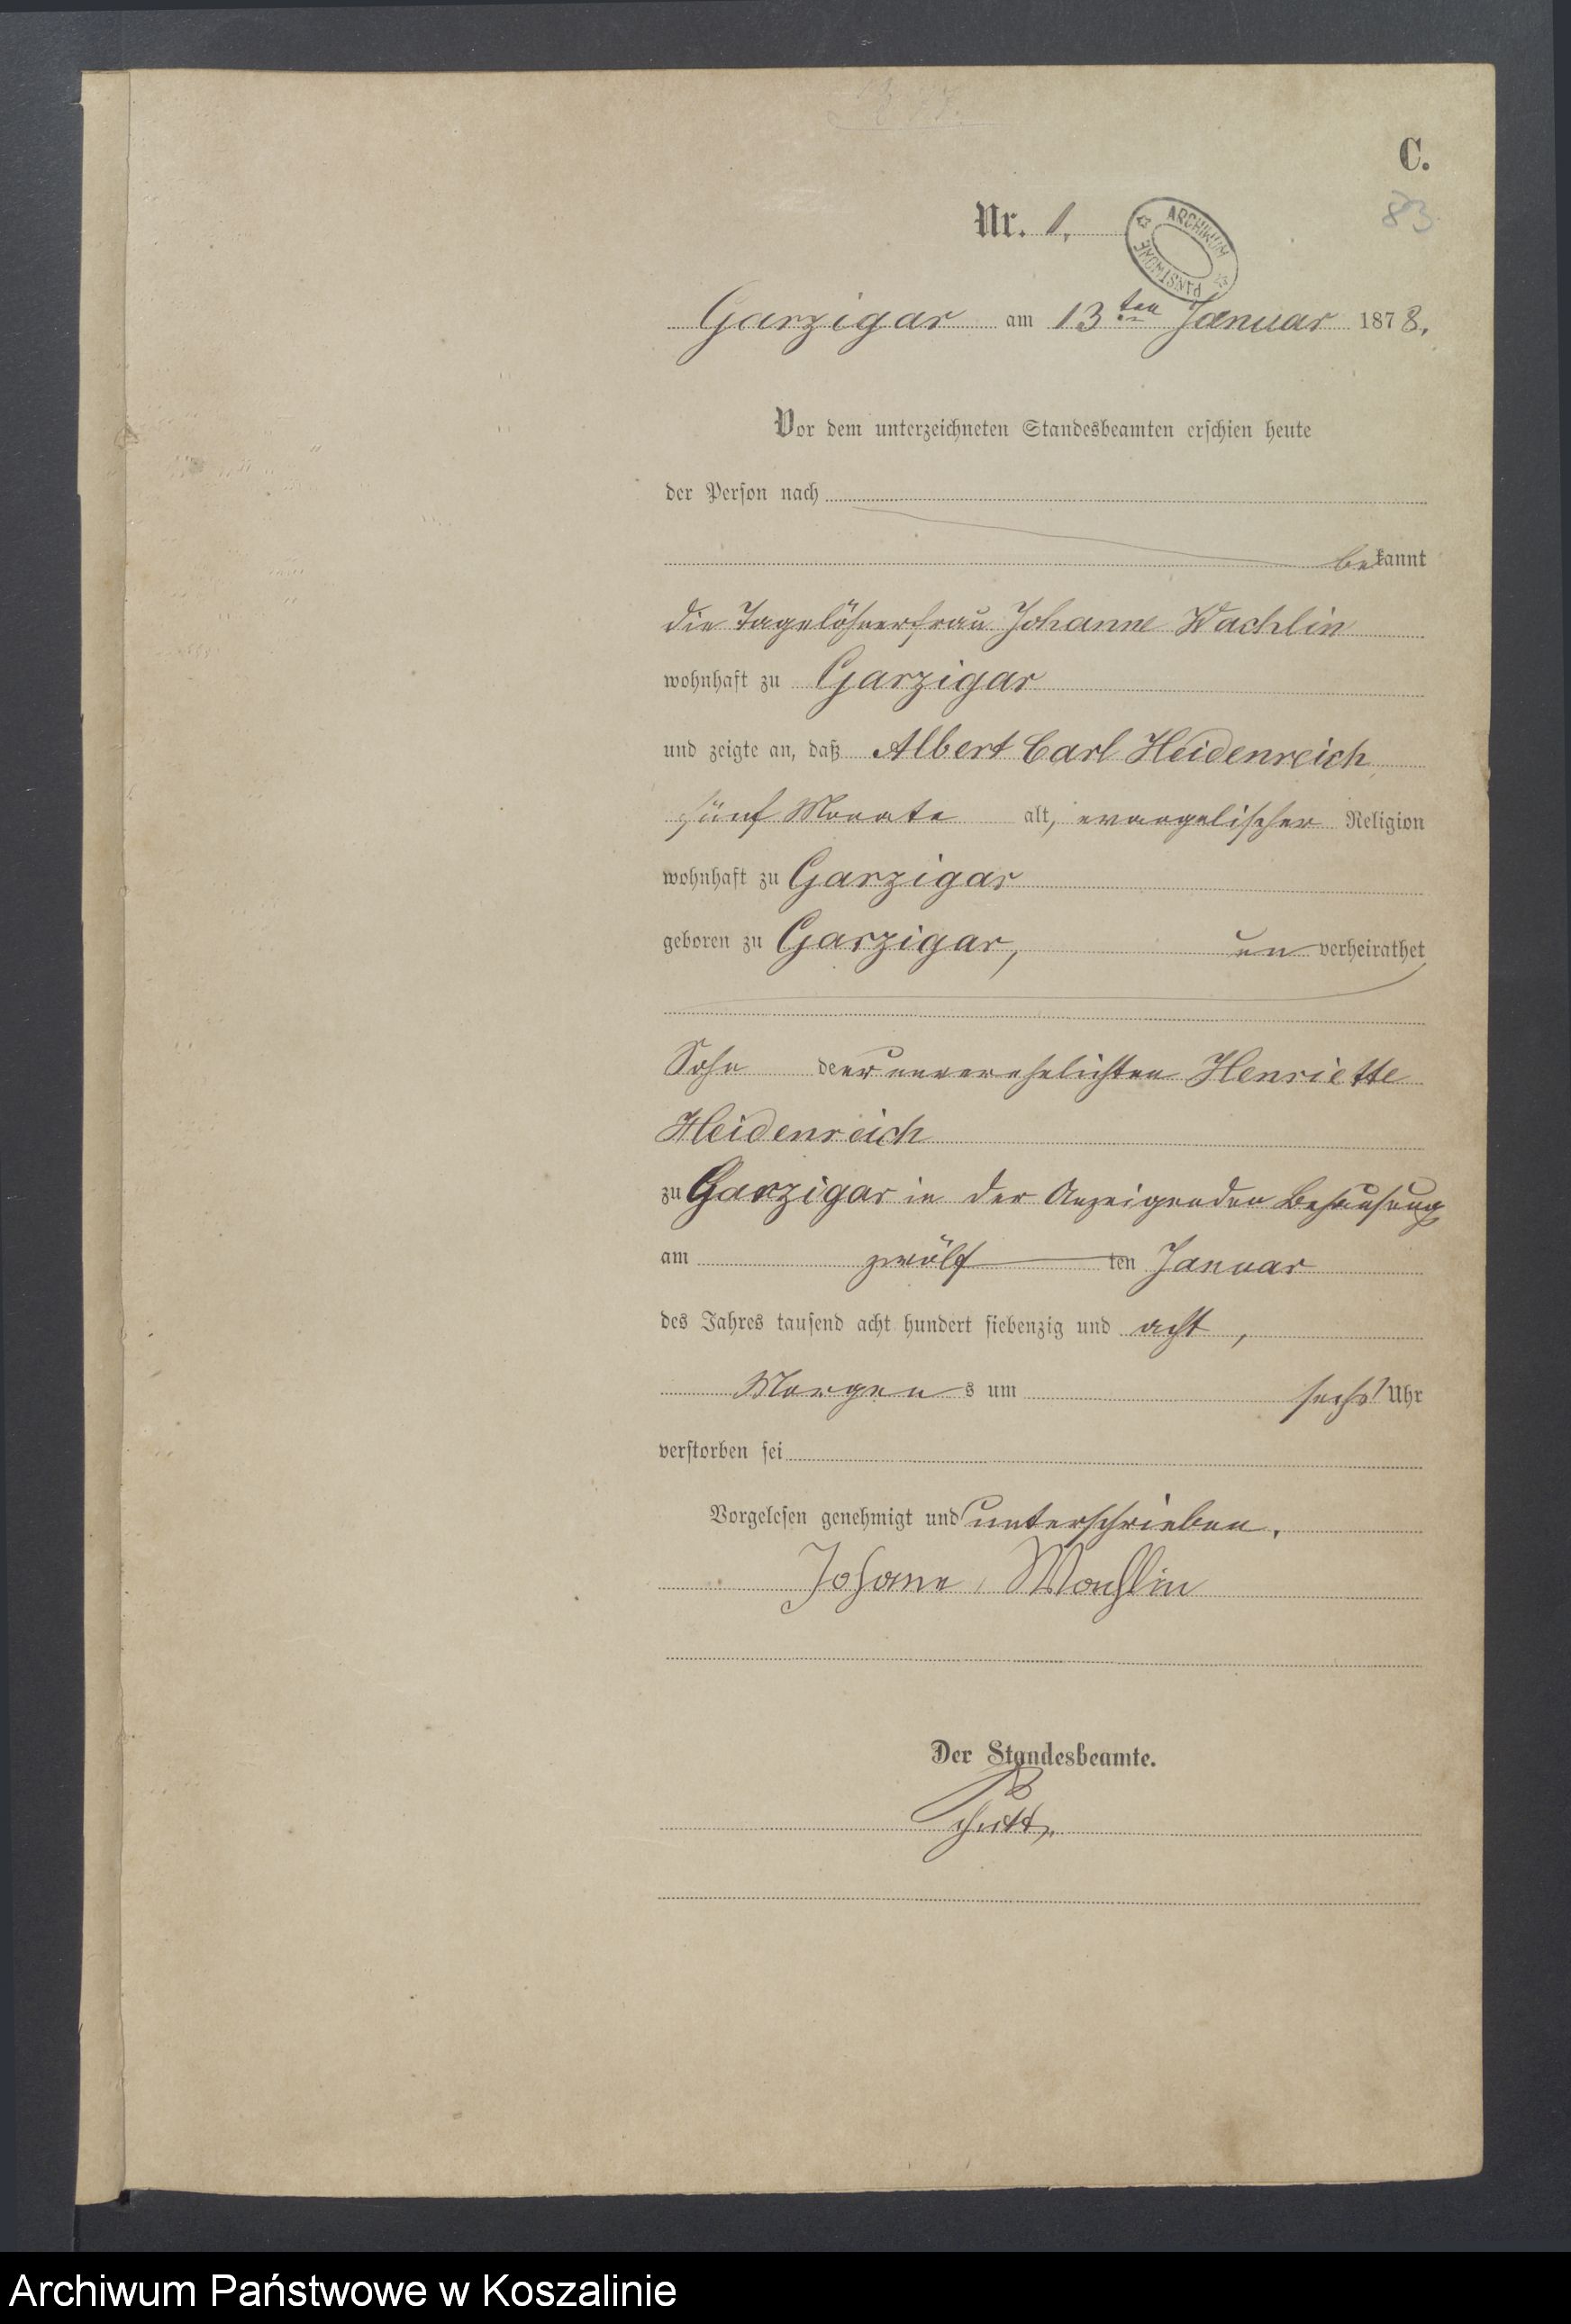 C.
83
Nr. 1.
ARCHIWUM PAŃSTWOWE
Garzigar am 13ten Januar 1878.
Vor dem unterzeichneten Standesbeamten erschien heute
der Person nach
bekannt
die Tagelöhnerfrau Johanne Wachlin
wohnhaft zu Garzigar
und zeigte an, daß Albert Carl Heidenreich
fünf Monate alt, evangelischer Religion
wohnhaft zu Garzigar
geboren zu Garzigar, unverheirathet
Sohn der unverehelichten Henriette
Heidenreich
zu Garzigar in der Anzeigenden Behausung
am zwölften Januar
des Jahres tausend acht hundert siebenzig und acht,
Morgens um sechs Uhr
verstorben sei
Vorgelesen genehmigt und unterschrieben.
Johane Wachlin
Der Standesbeamte.
Archiwum Państwowe w Koszalinie